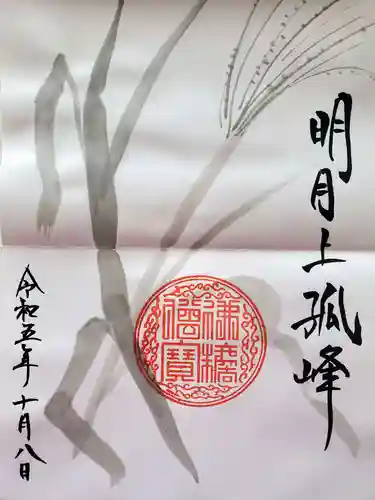 明月上孤峰
令和五年十月八日